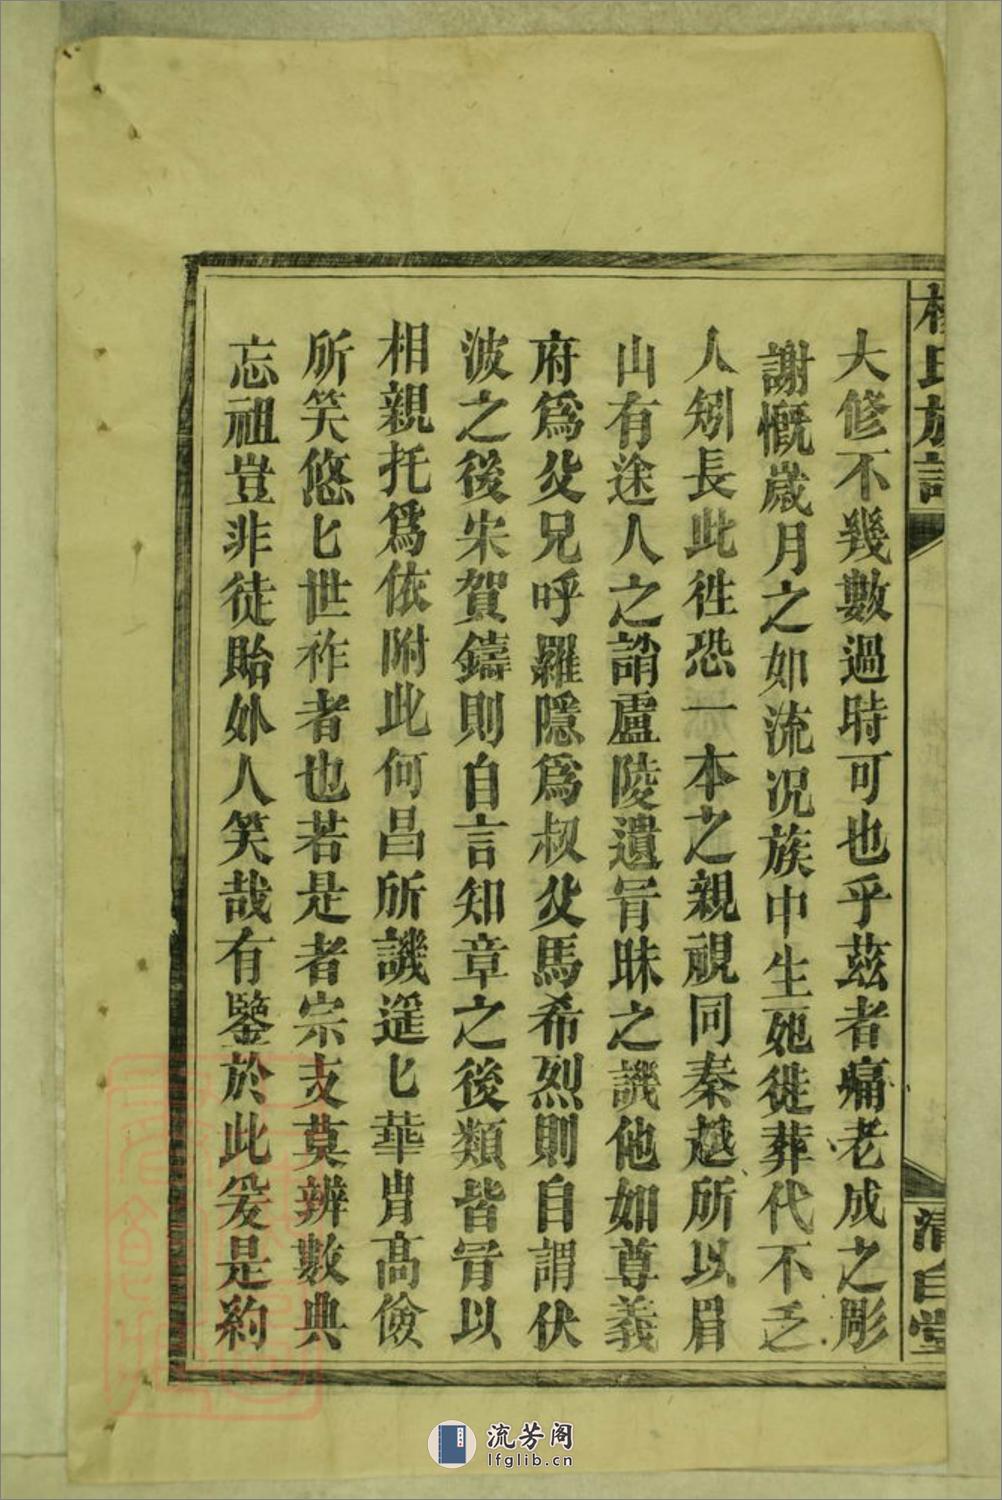 大修不幾數過時可也乎茲者痛老成之彫
謝慨歲月之如流況族中生𣦸徙葬代不乏
人矧長此徃恐一本之親視同秦越所以眉
山有途人之誚盧陵遺冐昧之譏他如尊義
府爲父兄呼羅隱爲叔父馬希烈則自謂伏
波之後宋賀鑄則自言知章之後類皆冐以
相親托爲依附此何昌所譏遥匕華胄高儉
所笑悠匕世祚者也若是者宗支莫辨數典
忘祖豈非徒貽外人笑哉有鑒於此爰是約
氏族
清白堂
流芳阁
lfglib.cn